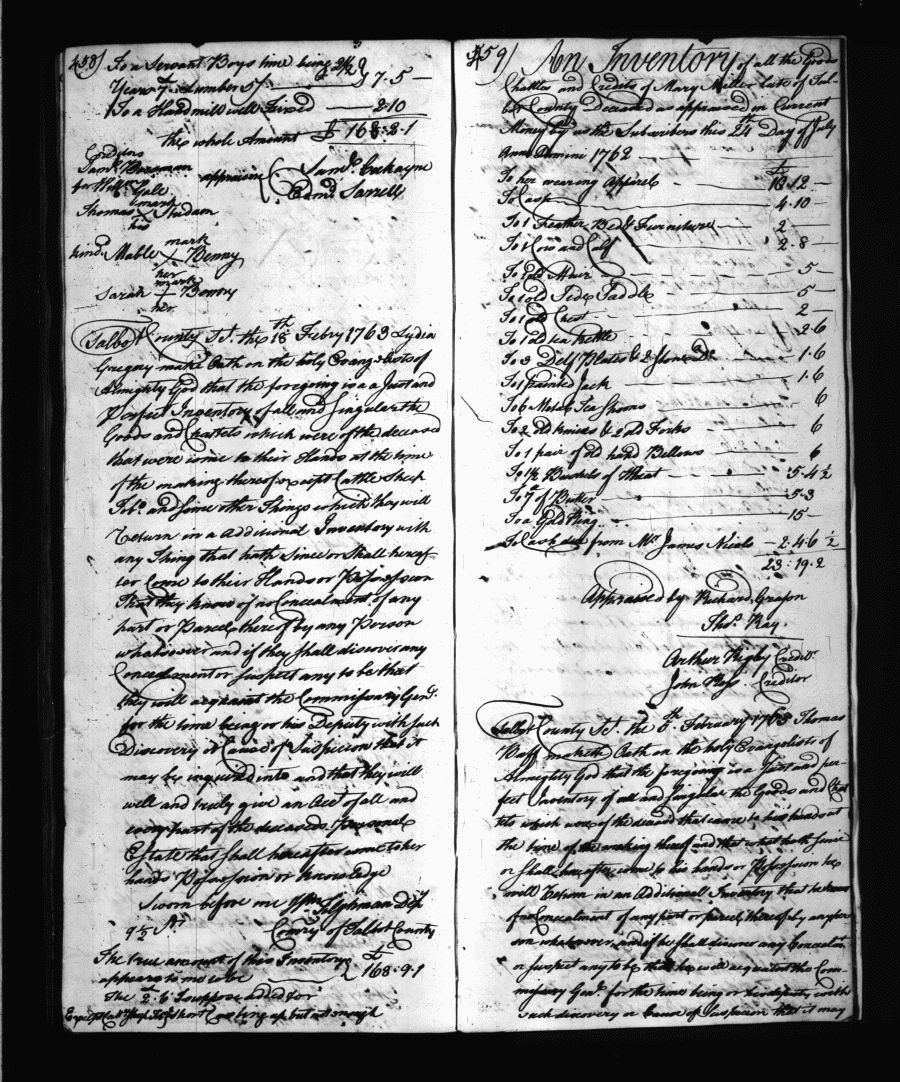 458)
To a Servant Boys time being 2 1/2
Years & Number 5/ 7.5 —
To a Handmill well Fixed 2.10
the whole Amount £ 168.8.1
Creditors
Saml Bozman
for Willm Gale
appraised Saml Cockayne
Edmd Farrell
mark
Thomas Studam
his
mark
kind. Mable X Benny
her
mark
Sarah + Benny
her
Talbot County Sct. the 18th Febry 1763 Lydia
Gregory make Oath on the holy Evangelists of
Almighty God that the foregoing is a a Just and
Perfect Inventory of all and Singular the
Goods and Chattels which were of the deceased
that were come to their Hands at the time
of the making thereof except Cattle Sheep
Tobo and some other Things which they will
Return in a Additional Inventory with
any Thing that hath Since or Shall hereaf-
ter come to their Hands or Possession
That they know of no Concealment of any
part or Parcel thereof by any Person
whatsoever and if they Shall discover any
Concealment or suspect any to be that
they will acquaint the Commissary Genl.
for the time being or his Deputy with such
Discovery or Cause of Suspicion that it
may be inquired into and that they will
well and truly give an Acct of all and
every part of the deceaseds Personal
Estate that shall hereafter come to her
hands Possession or knowledge
Sworn before me Wm Tilghman Dy
Comry of Talbot County
The true amount of this Inventory £
appears to me to be 168.9.1
The 2.6 Suppose added for
459) An Inventory of all the Goods
Chattles and Credits of Mary Miller late of Tal-
bot County Deceased as appraised in Current
Money by us the Subscribers this 24th Day of July
Anno Domini 1762
£
To her wearing Apparel 10.12 —
To Cash 4.10 —
To 1 Feather Bed & Furniture 2 —
To 1 Cow and Calf 2.8 —
To 1 old Mair 5 —
To 1 old Side Saddle 5 —
To 1 old Chest 2 —
To 1 old tea kettle 2.6
To 3 Delf Plates & 2 Stone Do 1.6
To 1 Painted Jack 1.6
To 6 Metal Tea Spoons 6
To 2 old knives & 2 old Forks 6
To 1 pair of old hand Bellows 6
To 1 1/2 Bushels of Wheat 5.4 1/2
To 7 lb of Butter 5.3
To a Gold Ring 15 —
To Cash due from Mr James Nicols 2.4.6 1/2
23.19.2
Appraised by Richard Grason
Thos Ray.
Arthur Rigby Creditr
John Ross Creditor
Talbot County Sct. the 8th February 1763 Thomas
maketh Oath on the holy Evangelists of
Almighty God that the foregoing is a Just and per-
fect Inventory of all and Singular the Goods and Chat
tels which were of the deceased that came to his hands at
the time of the making thereof and that what hath since
or shall hereafter come to his hands or Possession he
will Return in an Additional Inventory that he knows
of no Concealment of any part or parcel thereof by any per
son whatsoever, and if he shall discover any Concealmt
or suspect any to be that he will acquaint the Com-
missary Genl. for the time being or his deputy with
such discovery or Cause of Suspicion that it may